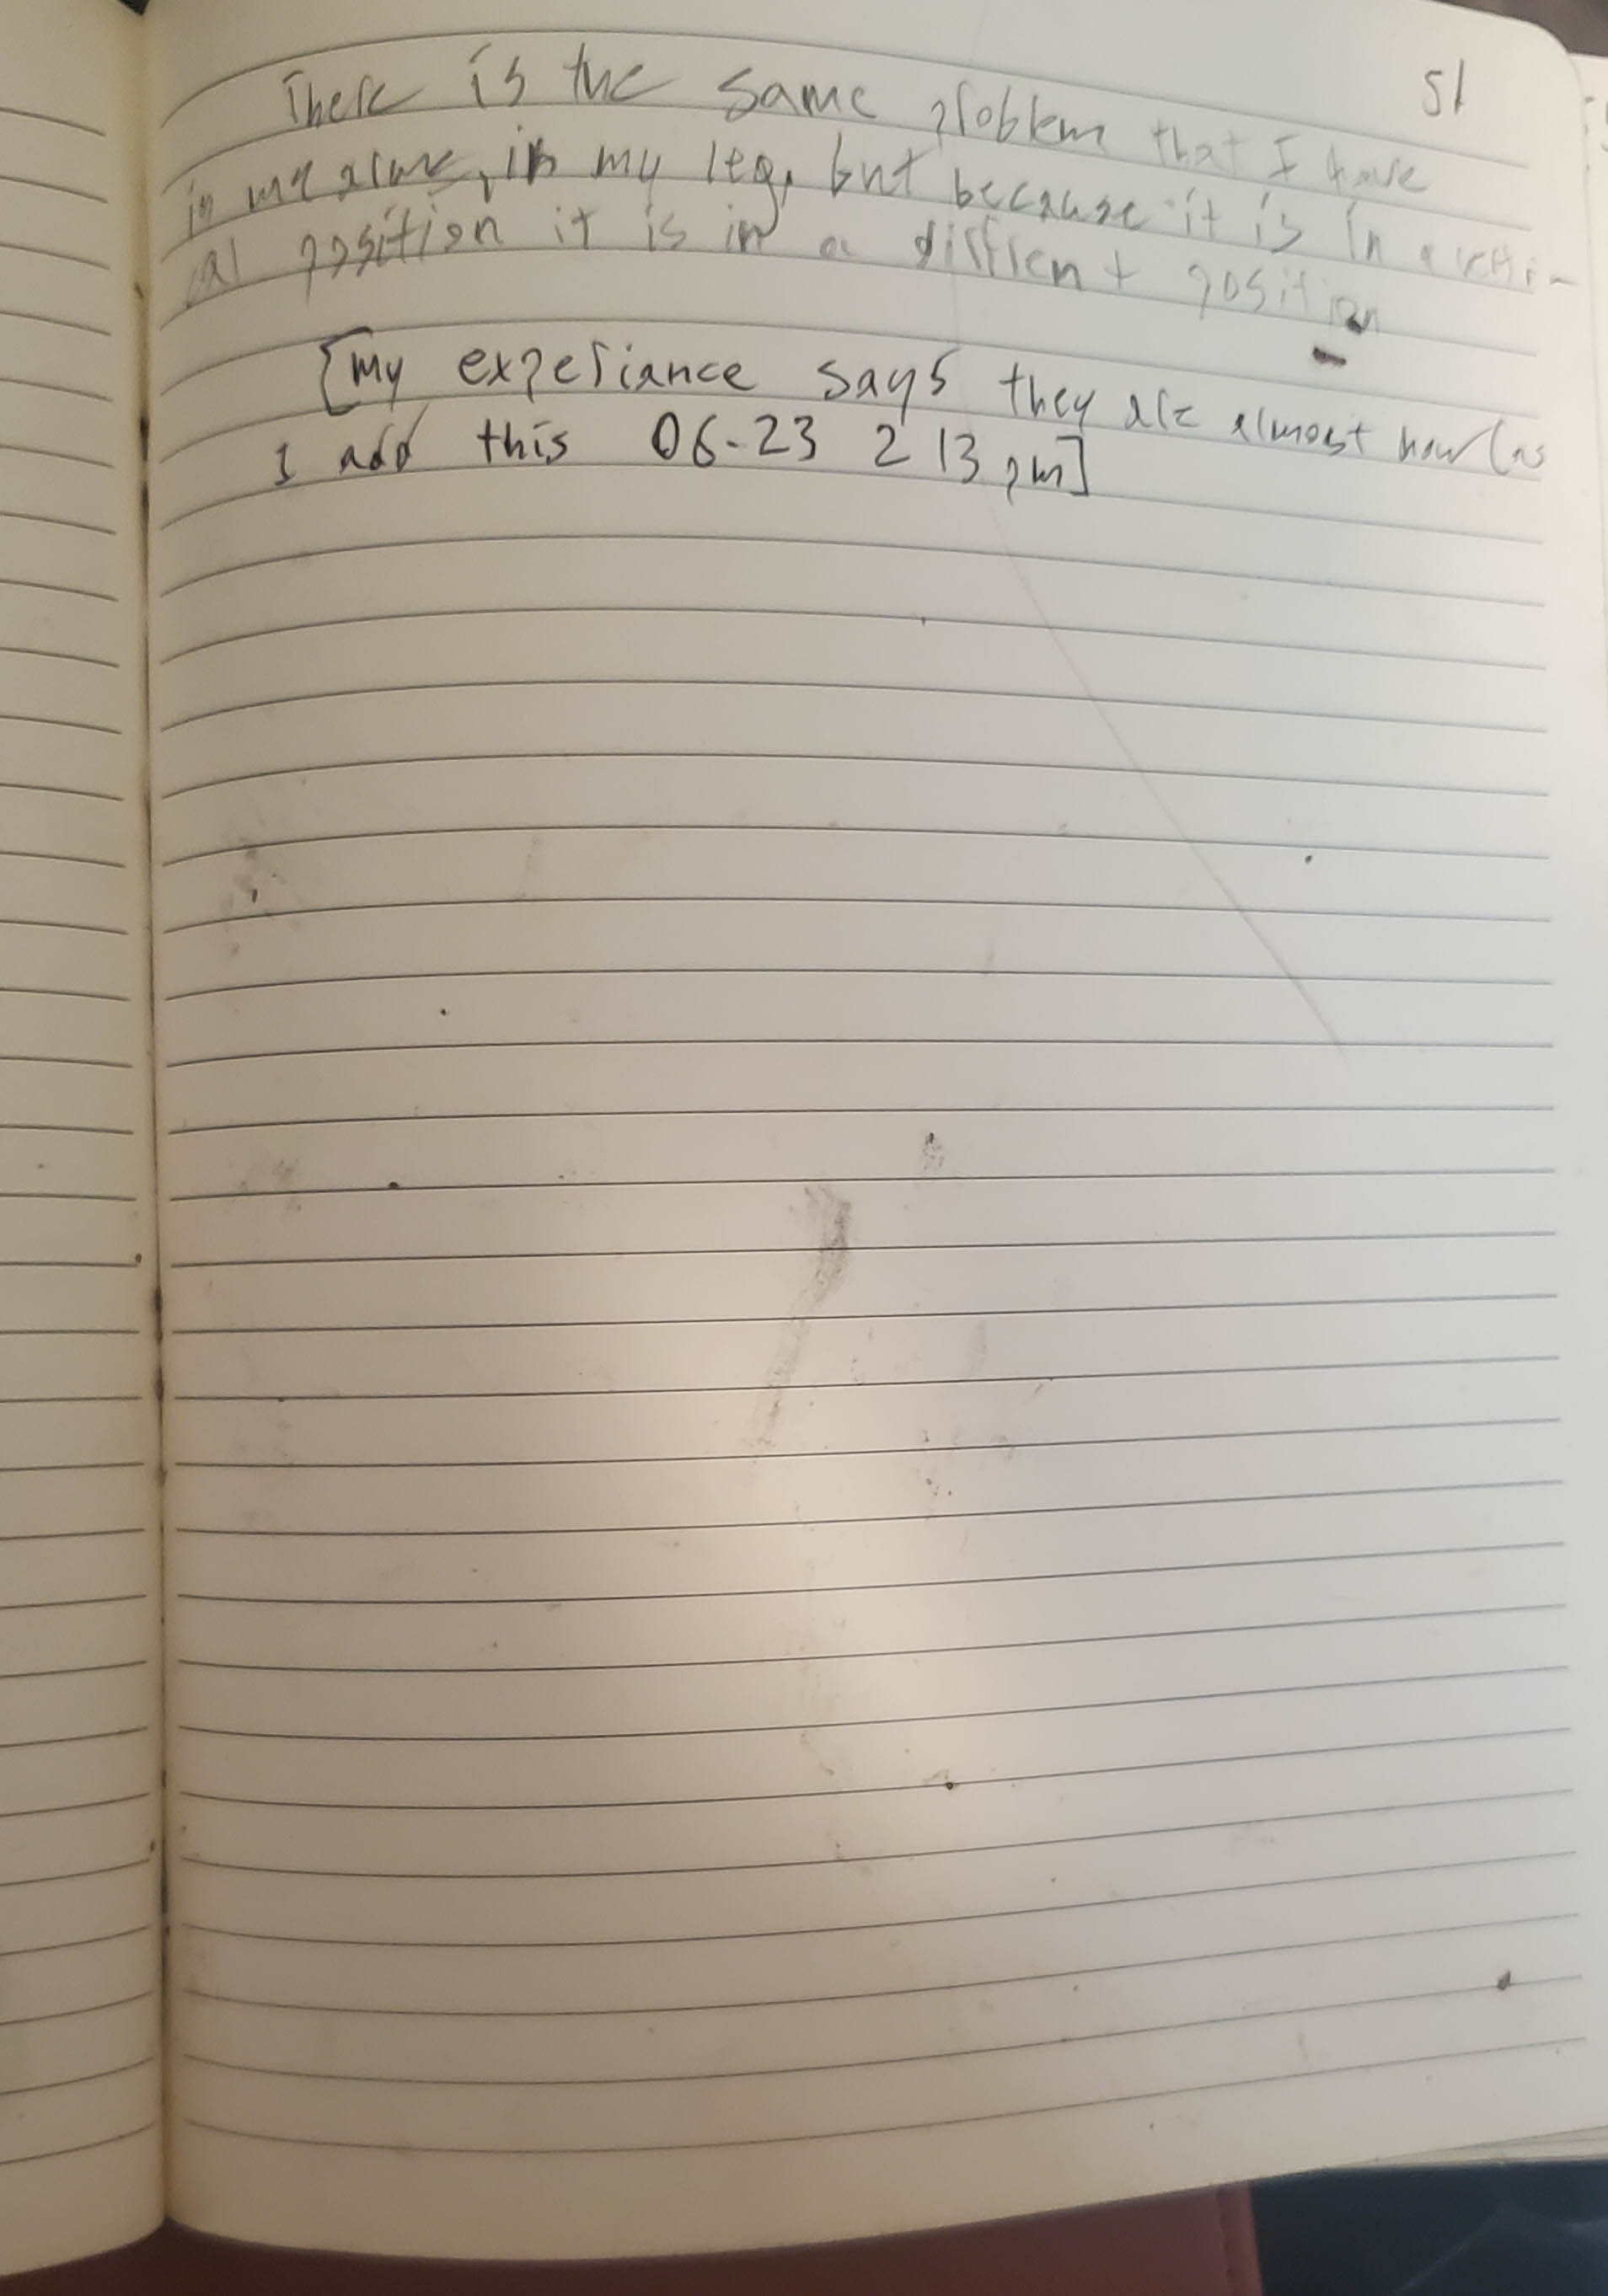 51
There is the same problem that I have
in my arms, in my leg, but because it is in a verti-
cal position it is in a diffrent position
[my experiance says they are almost now (as
I add this 06-23 2 13 pm]